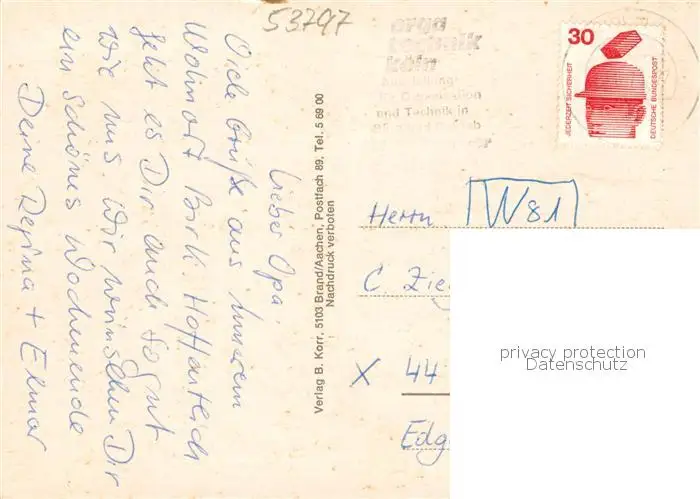 53797
Lieber Opa.
Viele Grüße aus unserem
Wohnort Birk. Hoffentlich
geht es Dir auch so gut
wie uns. Wir wünschen Dir
ein schönes Wochenende
Deine Regina + Elmar
Verlag B. Korr, 5103 Brand/Aachen, Postfach 89, Tel. 5 69 00
Nachdruck verboten
orga
technik
köln
und Technik in
30
JEDERZEIT SICHERHEIT
DEUTSCHE BUNDESPOST
Herrn W81
C. Zie
X 44
Edg
privacy protection
Datenschutz